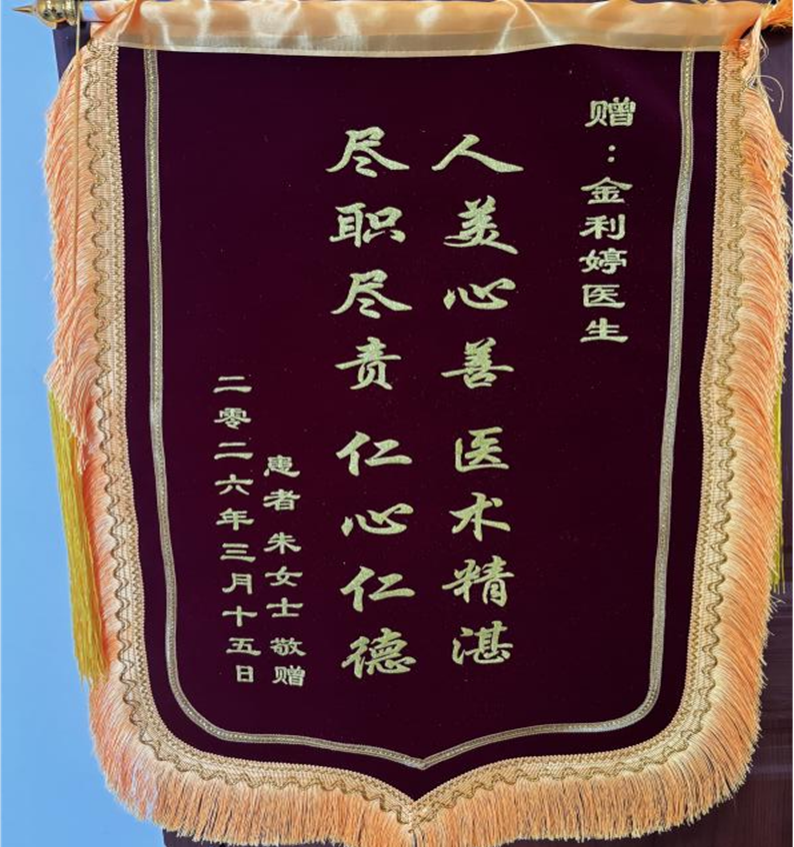 赠：金利婷医生
人美心善 医术精湛
尽职尽责 仁心仁德
患者 朱女士 敬赠
二零二六年三月十五日